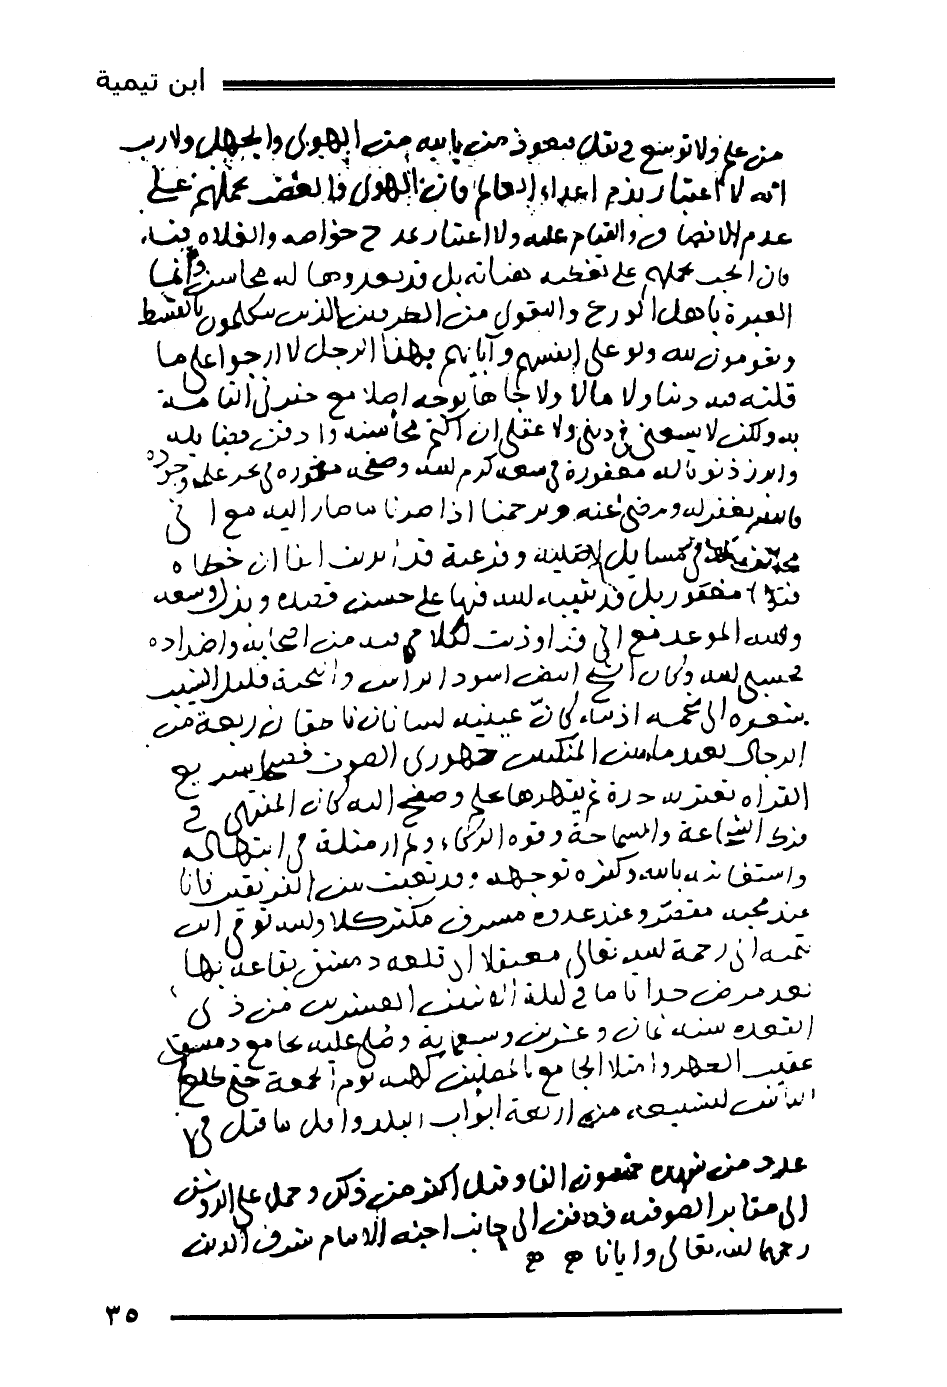 ابن تيمية
من علم ولا توسع في نقل فنعوذ من يابيه من الهوى والجهل ولا ريب
انه لا اعتبار بذم اعداء العالم فان الهوى والغضب يحملهم على
عدم الانصاف والقيام عليه ولا اعتبار بمدح خواصه والغلاة فيه
فان الحب يحملهم على تغطيه هناته بل قد يعدوها له محاسن وانما
العبرة باهل الورع والتقوى من الطرفين الذين يتكلمون بالقسط
ويقومون لله ولو على انفسهم وآبائهم فهذا الرجل لا ارجوا على ما
قلته فيه دنيا ولا مالا ولا جاها بوجه اصلا مع خبرتي التامة
به ولكن لا يسعني في ديني ولا عقلي ان اكتم محاسنه وادفن فضايله
وابرز ذنوبا له مغفورة في سعة كرم الله وصفحه مغمورة في بحر علمه وجوده
فالله يغفر له ويرضى عنه ويرحمنا اذا صرنا لما صار اليه مع اني
مخالف له في مسايل اصلية وفرعية قد ابديت انفا ان خطاه
فيها مغفور بل قد يثيبه الله فيها على حسن قصده وبذل وسعه
والله الموعد مع اني قد اوذيت لكلامي فيه من اصحابه واضداده
فحسبي الله وكان الشيخ ابيض اسود الراس واللحية قليل الشيب
شعره الى شحمه اذنيه كانّ عينيه لسانان ناطقان ربعة من
الرجال بعيد ما بين المنكبين جهوري الصوت فصيحا سريع
القراه تعتريه حدة ثم يقهرها بحلم وصفح اليه كان المنتهى في
فرط الشجاعة والسماحة وقوه الذكاء ولم ار مثله في ابتهاله
واستغاثته بالله وكثره توجهه وقد تعبت بين الفريقين فانا
عند محبه مقصر وعند عدوه مسرف مكثر كلا والله توفي ابن
تيميه الى رحمة الله تعالى معتقلا في قلعه دمشق بقاعة بها
بعد مرض جدا اياما في ليلة الاثنين العشرين من ذي
القعده سنه ثمان وعشرين وسبعماية وصلي عليه بجامع دمشق
عقيب الظهر وامتلا الجامع بالمصلين كهيه يوم الجمعة حتى طلع
الناس لتشييعه من اربعة ابواب البلد واقل ما قيل في
عدد من شهده خمسون الفا وقيل اكثر من ذلك وحمل على الرؤس
الى مقابر الصوفيه فدفن الى جانب اخيه الامام شرف الدين
رحمهما الله تعالى وايانا
٣٥